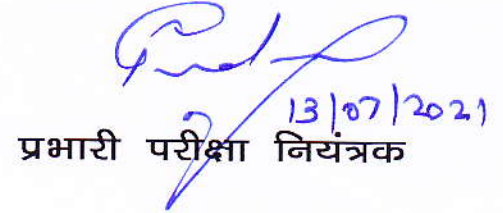 13/07/2021
प्रभारी परीक्षा नियंत्रक